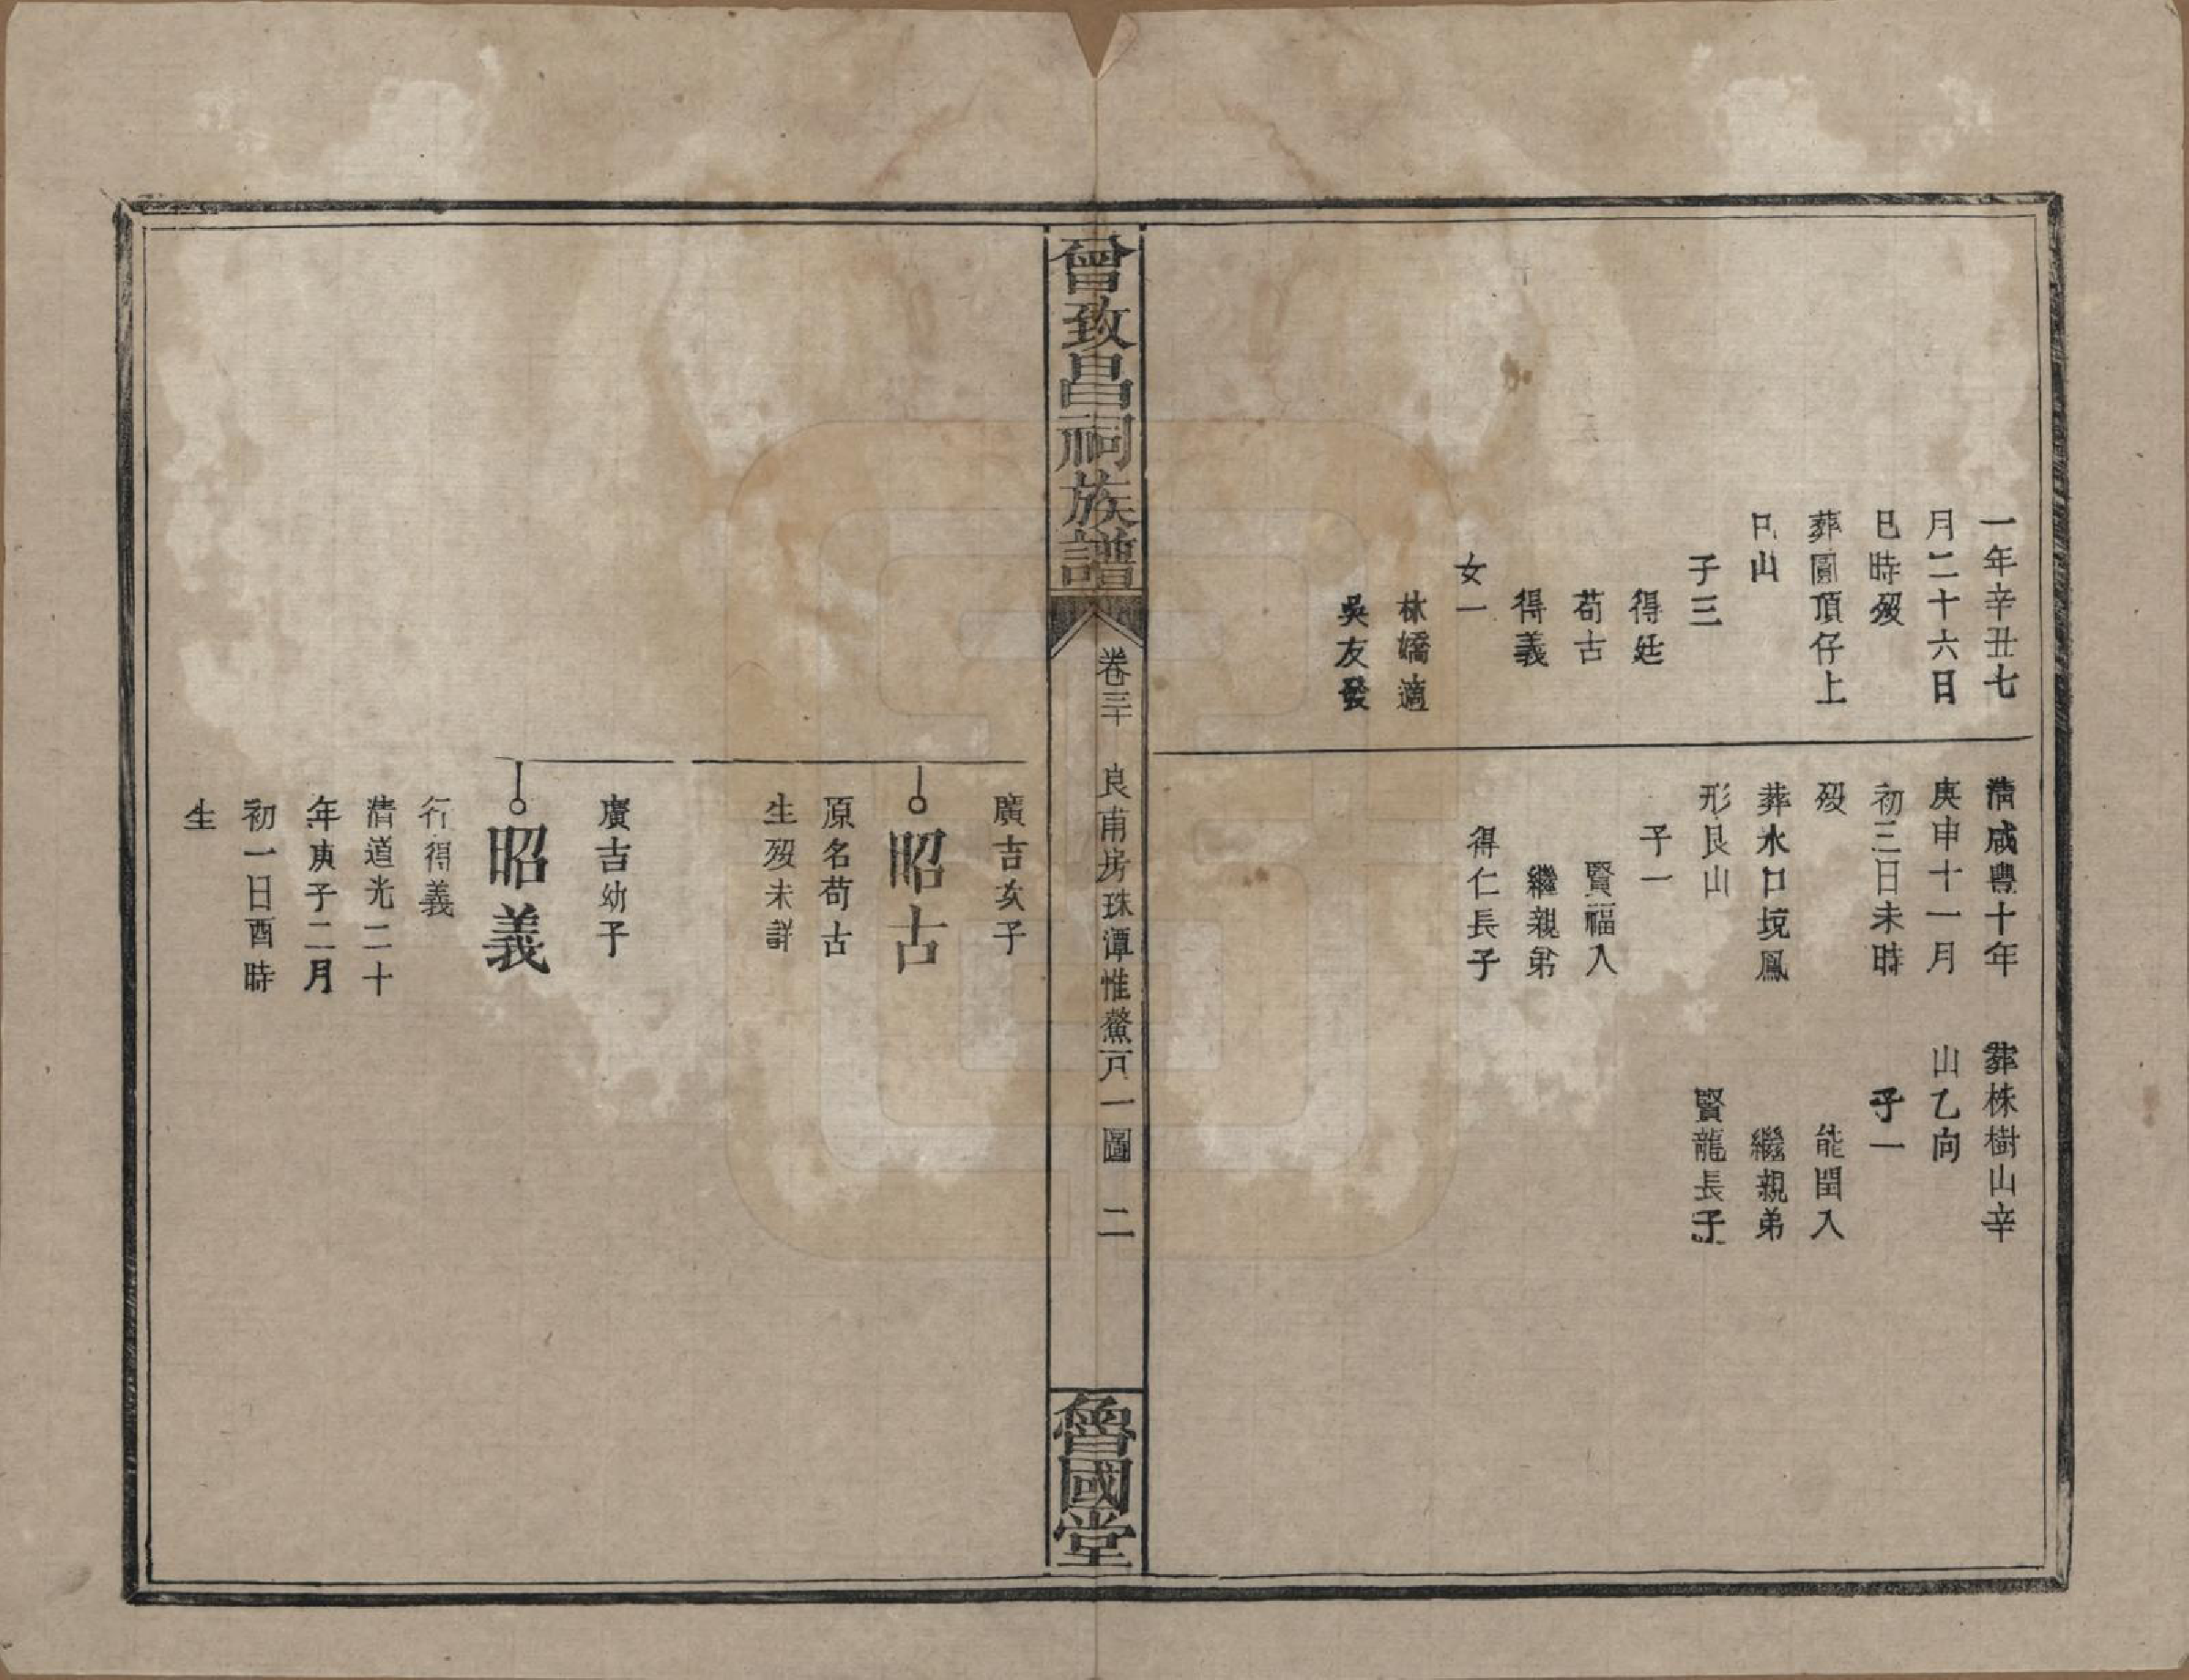 一年辛丑七
月二十六日
巳時歿
葬圓頂仔上
山
子三
得廷
苟古
得義
女一
林嬌適
吳友發
清咸豐十年
庚申十一月
初三日未時
歿
葬水口境鳳
形艮山
子一
賢福入
繼親弟
得仁長子
葬株樹山辛
山乙向
子一
能閏入
繼親弟
賢龍長子
曾致昌祠族譜
卷三十
良甫房珠潭惟鰲戸一圖
二
魯國堂
廣吉次子
昭古
原名苟古
生歿未詳
廣吉幼子
昭義
行得義
清道光二十
年庚子二月
初一日酉時
生